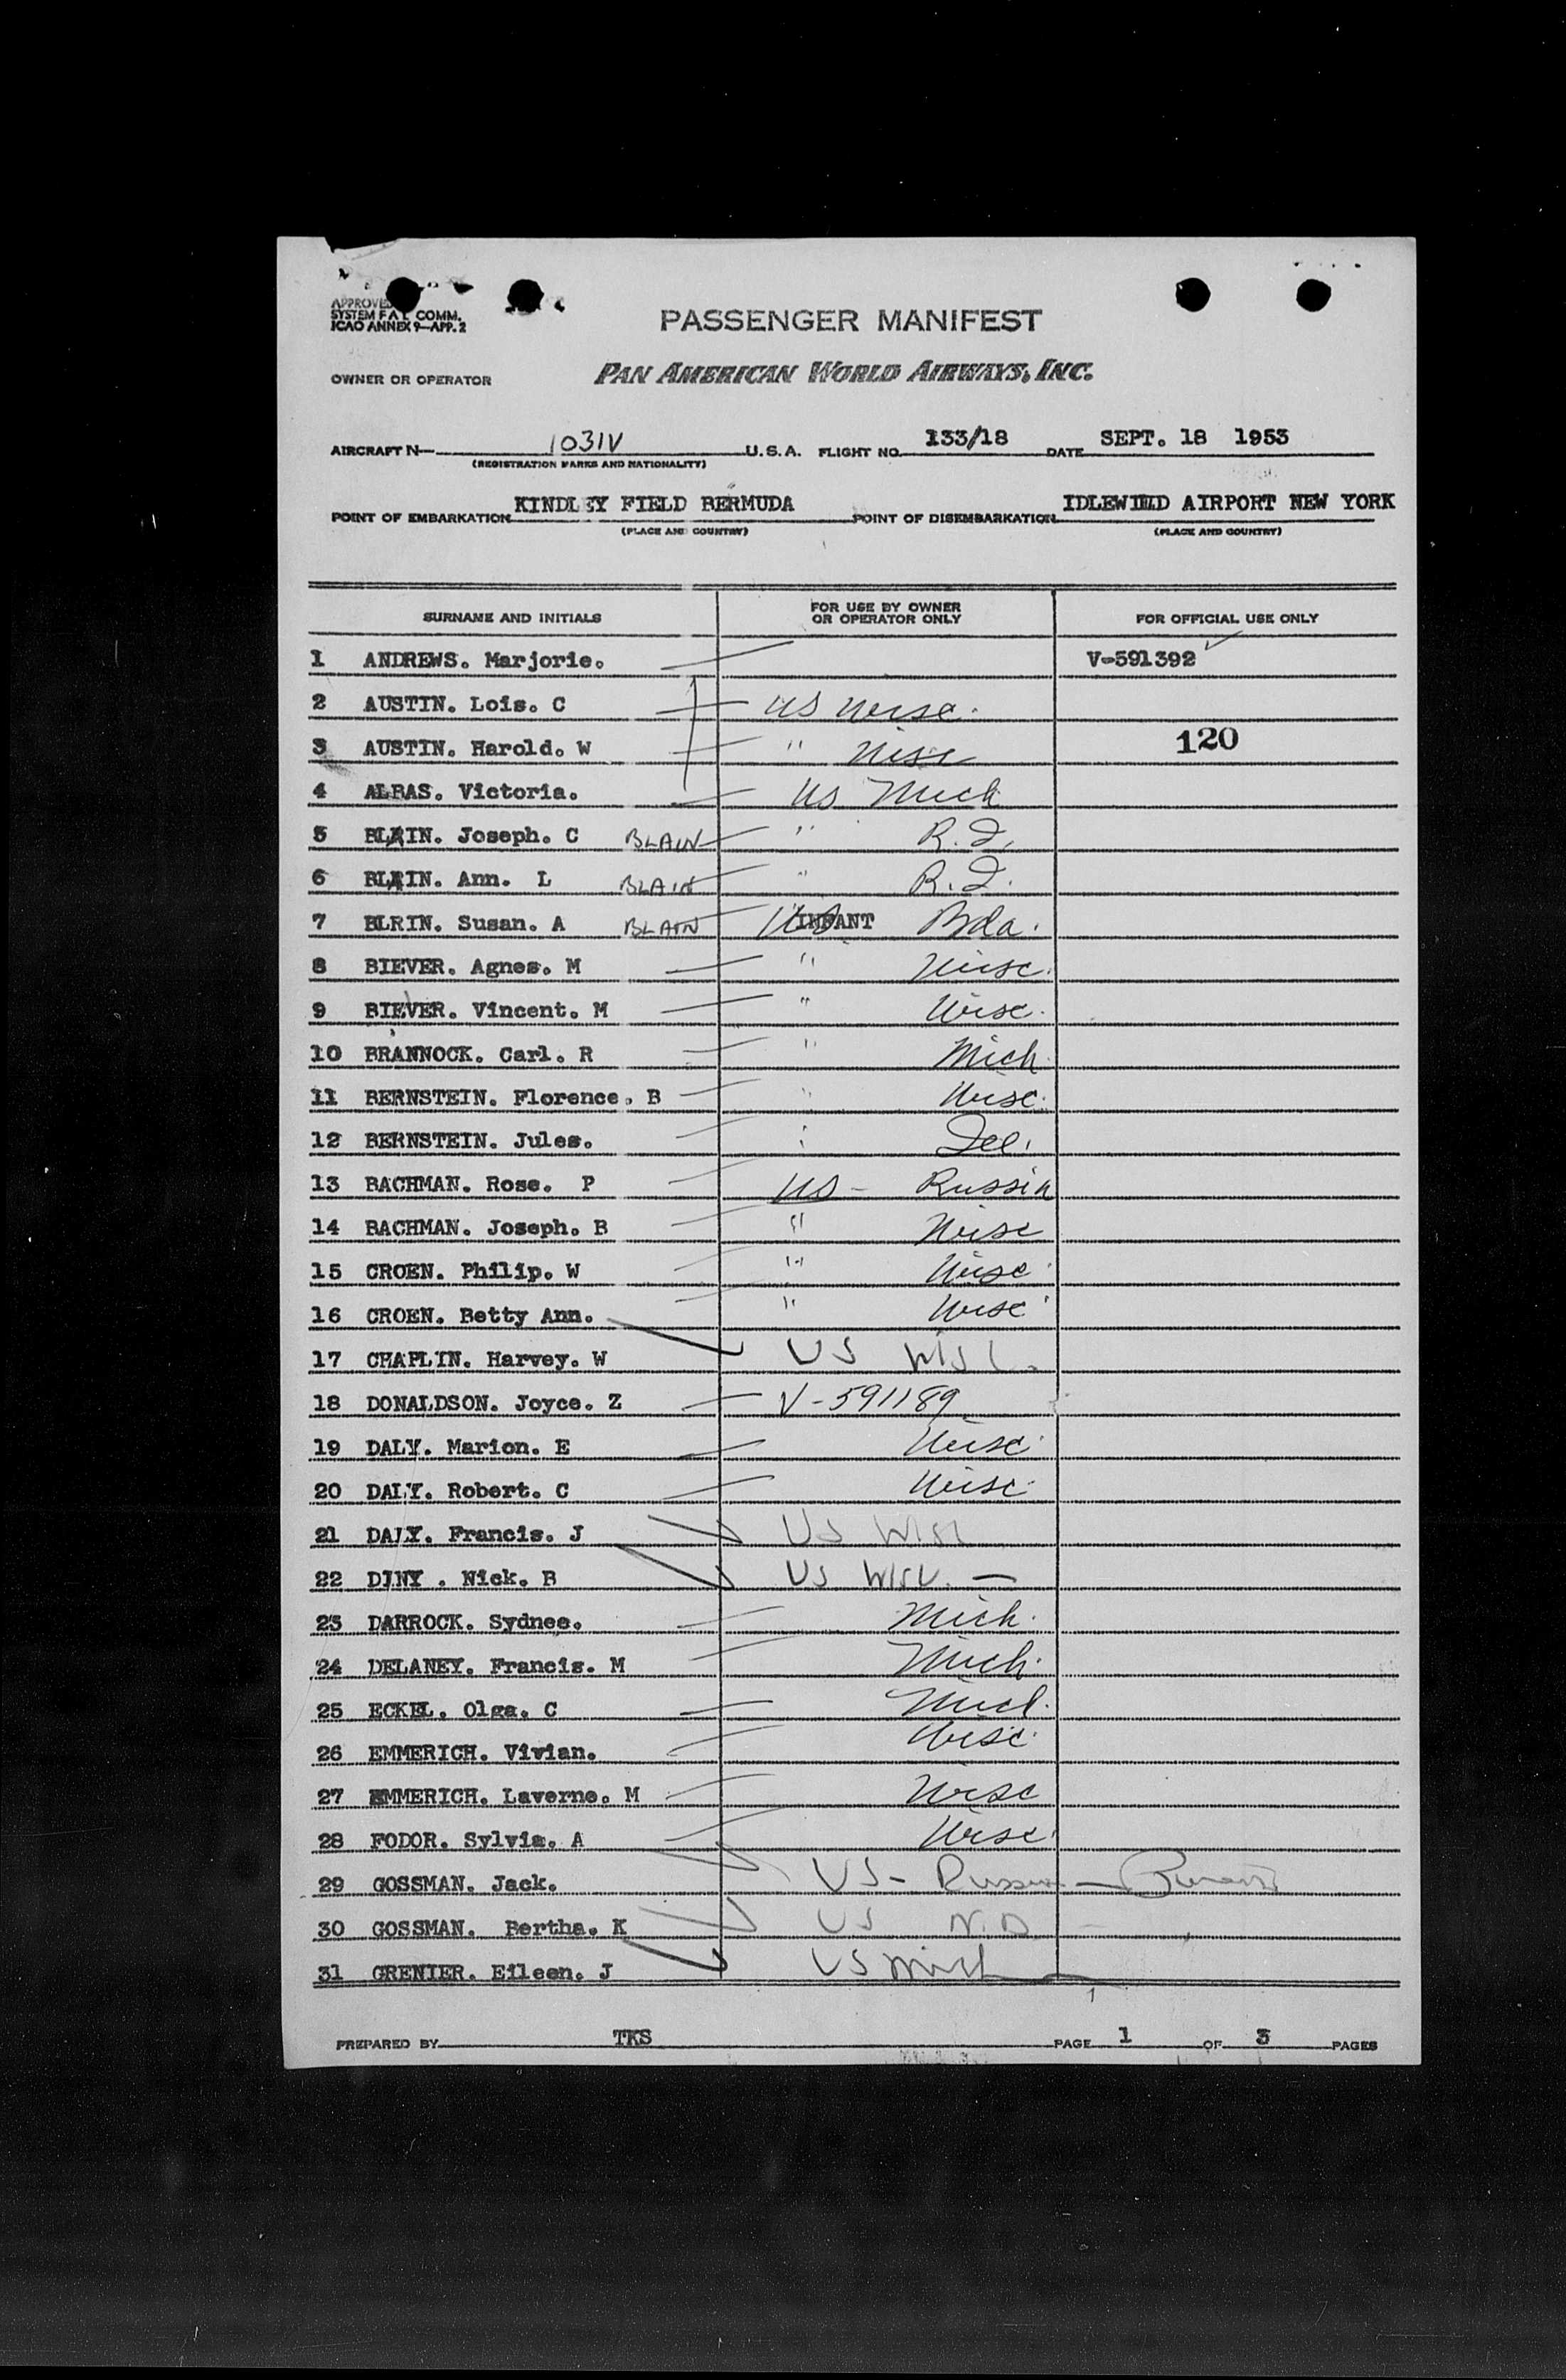 APPROVED
SYSTEM F A L COMM.
ICAO ANNEX 9—APP. 2
PASSENGER MANIFEST
OWNER OR OPERATOR PAN AMERICAN WORLD AIRWAYS, INC.
AIRCRAFT N— 1031V U.S.A. FLIGHT NO. 133/18 DATE SEPT. 18 1953
(REGISTRATION MARKS AND NATIONALITY)
POINT OF EMBARKATION KINDLEY FIELD BERMUDA POINT OF DISEMBARKATION IDLEWILD AIRPORT NEW YORK
(PLACE AND COUNTRY) (PLACE AND COUNTRY)
SURNAME AND INITIALS FOR USE BY OWNER OR OPERATOR ONLY FOR OFFICIAL USE ONLY
1 ANDREWS. Marjorie. V-591392
2 AUSTIN. Lois. C US Wisc.
3 AUSTIN. Harold. W " Wisc 120
4 ALBAS. Victoria. US Mich
5 BLAIN. Joseph. C BLAIN " R.I.
6 BLAIN. Ann. L BLAIN " R.I.
7 BLRIN. Susan. A BLAIN US INFANT Bda.
8 BIEVER. Agnes. M " Wisc.
9 BIEVER. Vincent. M " Wisc.
10 BRANNOCK. Carl. R " Mich.
11 BERNSTEIN. Florence. B " Wisc.
12 BERNSTEIN. Jules. "
13 BACHMAN. Rose. P US - Russia
14 BACHMAN. Joseph. B " Wisc
15 CROEN. Philip. W " Wisc
16 CROEN. Betty Ann. " Wisc
17 CHAPLIN. Harvey. W US Wisc.
18 DONALDSON. Joyce. Z V-591189
19 DALY. Marion. E Wisc.
20 DALY. Robert. C Wisc.
21 DALY. Francis. J US Wisc
22 DINY . Nick. B US Wisc. —
23 DARROCK. Sydnee. Mich.
24 DELANEY. Francis. M Mich.
25 ECKEL. Olga. C Mich.
26 EMMERICH. Vivian. Wisc.
27 EMMERICH. Laverne. M Wisc
28 FODOR. Sylvia. A Wisc.
29 GOSSMAN. Jack. US - Russia —
30 GOSSMAN. Bertha. K US N.D.
31 GRENIER. Eileen. J US Mich
PREPARED BY TKS PAGE 1 OF 3 PAGES